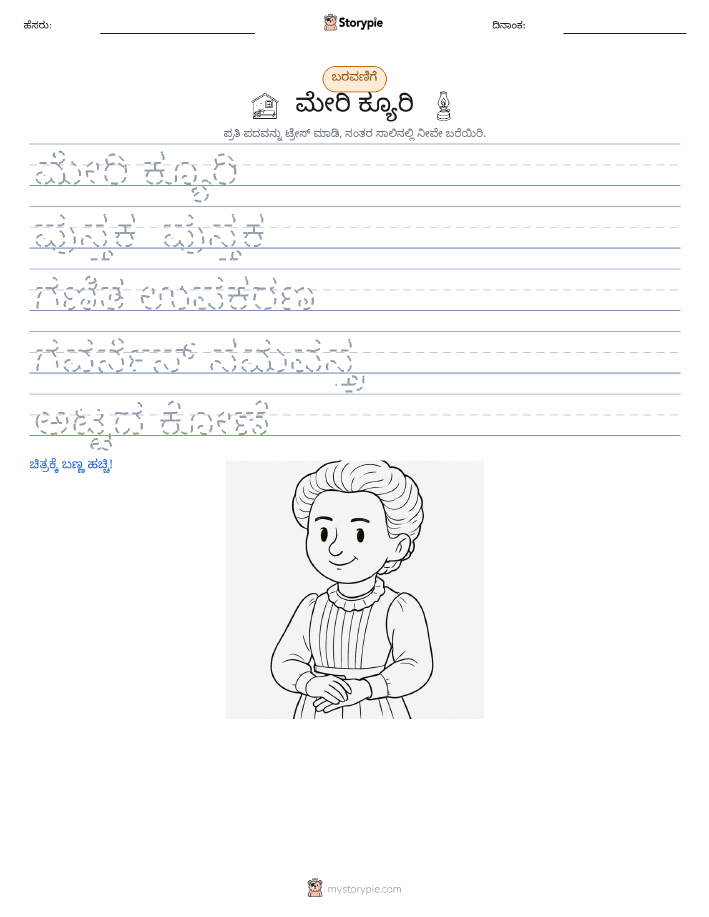 ಹೆಸರು:
Storypie
ದಿನಾಂಕ:
ಬರವಣಿಗೆ
ಮೇರಿ ಕ್ಯೂರಿ
ಪ್ರತಿ ಪದವನ್ನು ಟ್ರೇಸ್ ಮಾಡಿ, ನಂತರ ಸಾಲಿನಲ್ಲಿ ನೀವೇ ಬರೆಯಿರಿ.
ಮೇರಿ ಕ್ಯೂರಿ
ಪುಸ್ತಕ ಪುಸ್ತಕ
ಗಣಿತ ಉಪಕರಣ
ಗವರ್ನೆಸ್ ಸಮವಸ್ತ್ರ
ಅಟ್ಟದ ಕೋಣೆ
ಚಿತ್ರಕ್ಕೆ ಬಣ್ಣ ಹಚ್ಚಿ!
mystorypie.com